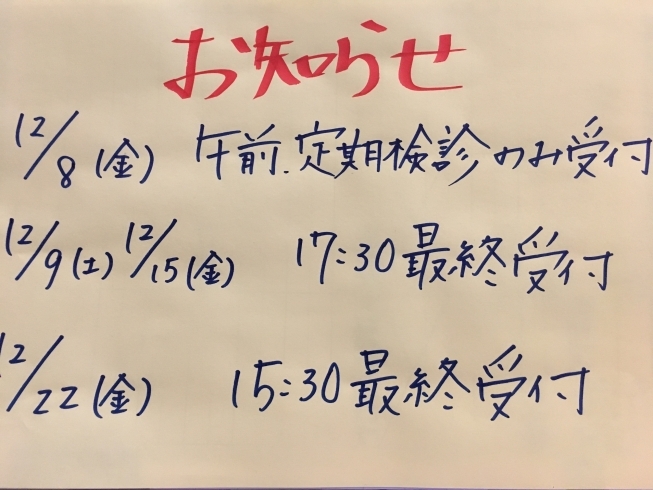 お知らせ
12/8(金) 午前.定期検診のみ受付
12/9(土) 12/15(金) 17:30最終受付
12/22(金) 15:30最終受付